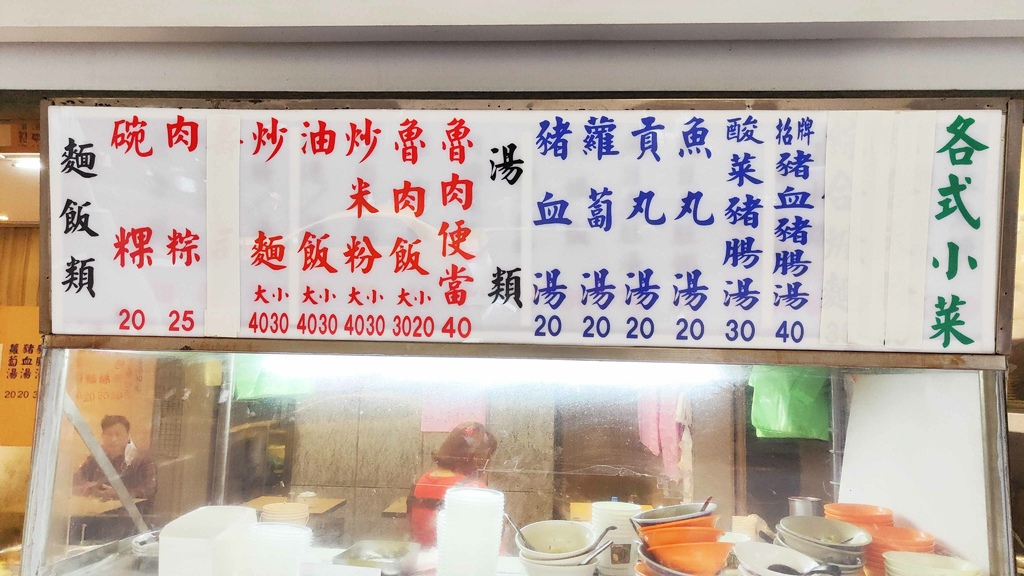 麵飯類
碗粿 20
肉粽 25
炒麵 大小 4030
油飯 大小 4030
炒米粉 大小 4030
魯肉飯 大小 3020
魯肉便當 40
湯類
豬血湯 20
蘿蔔湯 20
貢丸湯 20
魚丸湯 20
酸菜豬腸湯 30
招牌豬血豬腸湯 40
各式小菜
蘿蔔湯 20
豬血湯 20